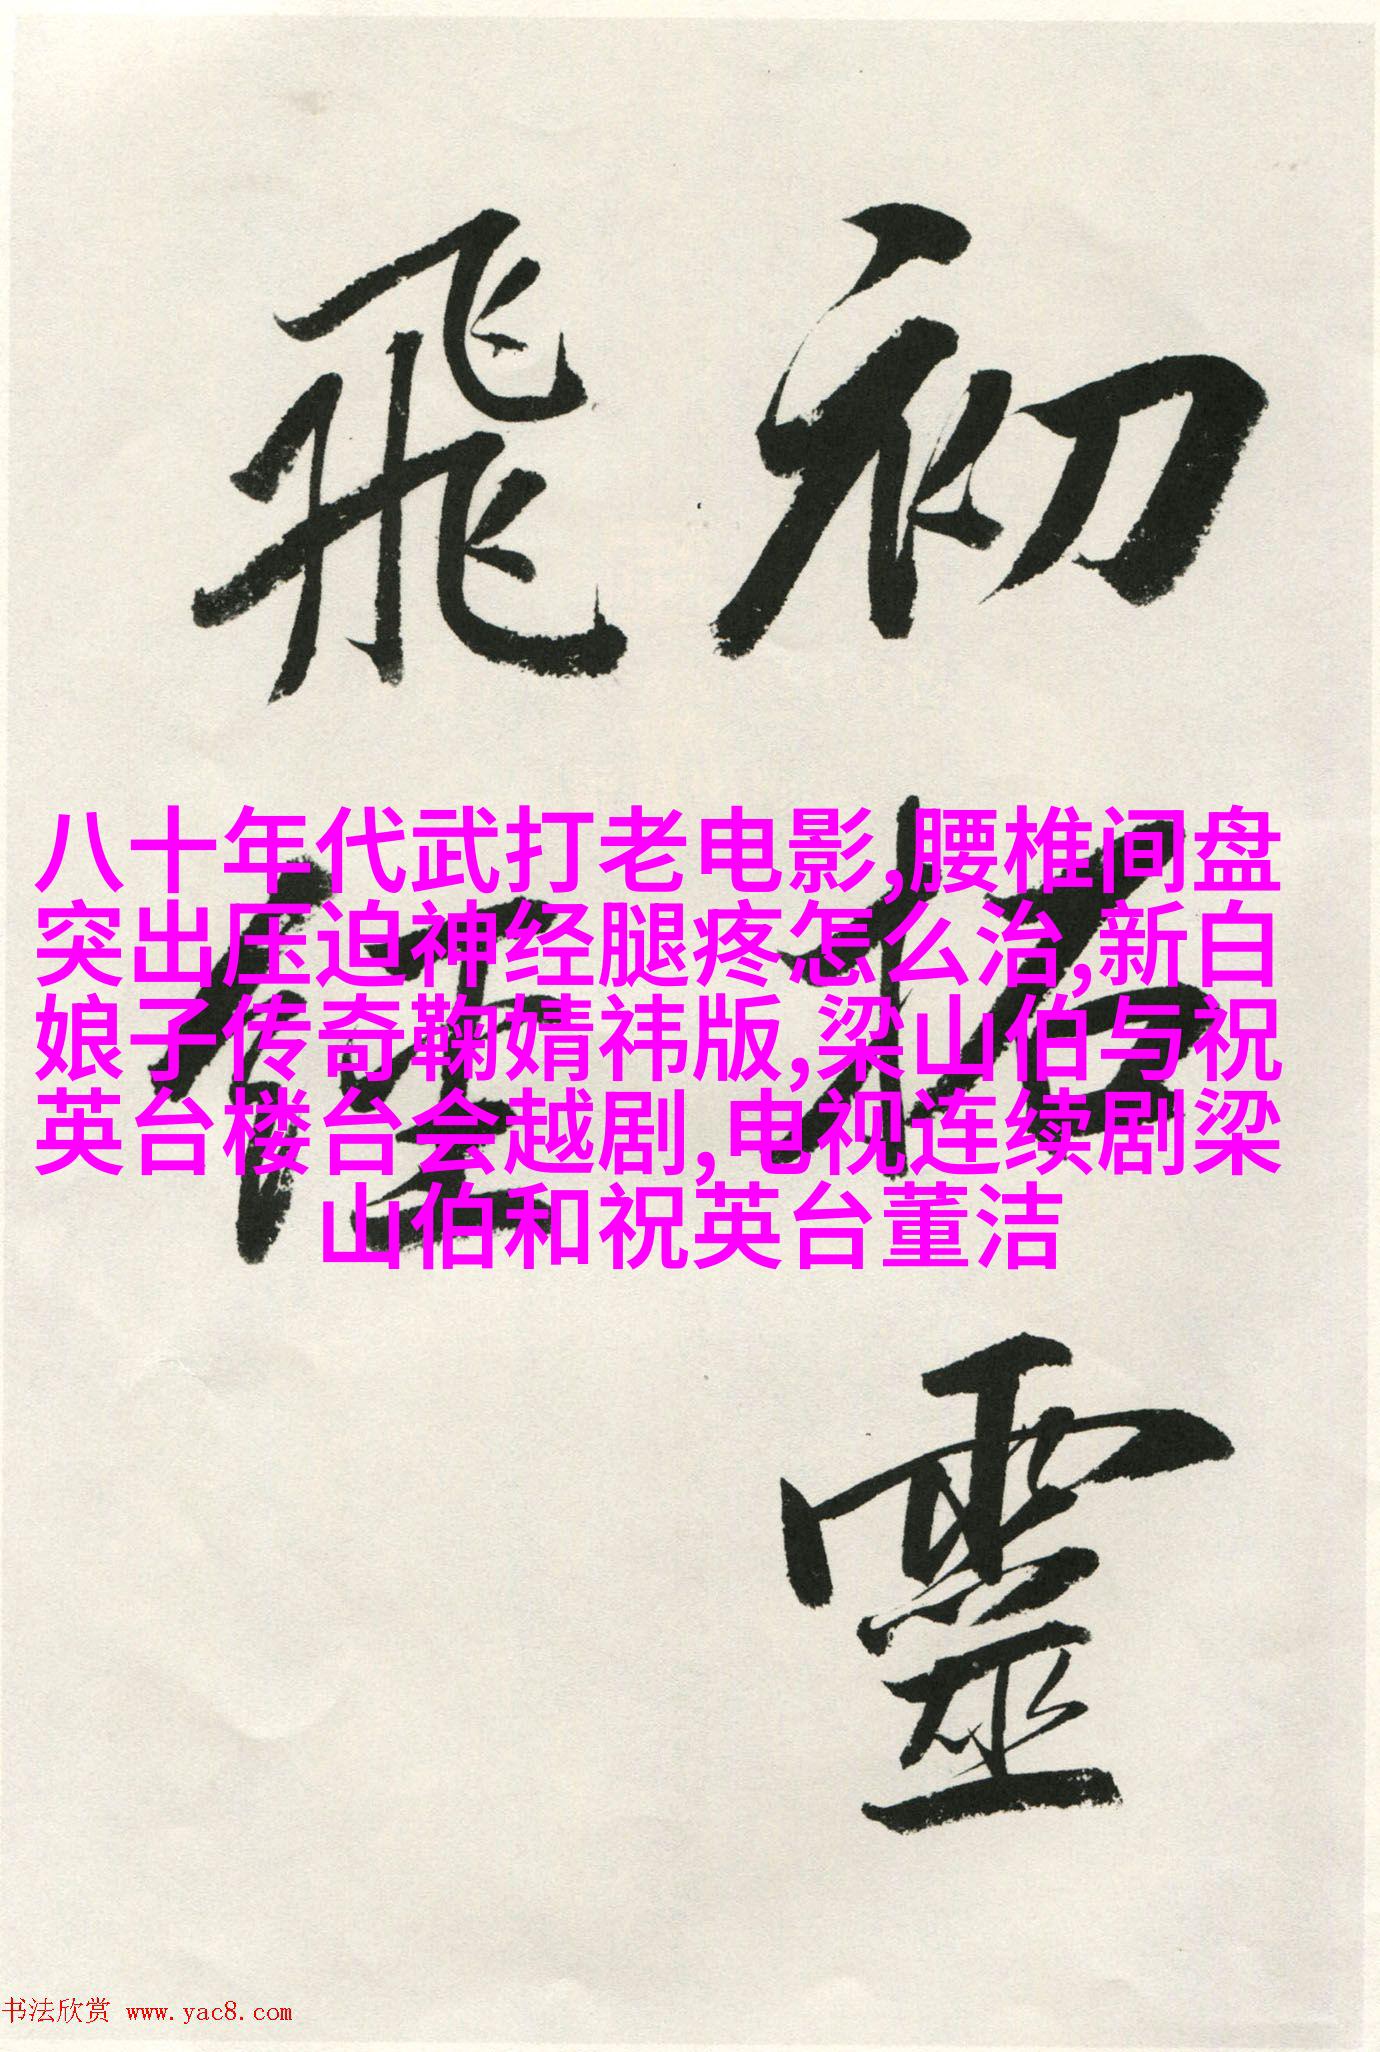 初拓靈
飛經
八十年代武打老电影,腰椎间盘
突出压迫神经腿疼怎么治,新白
娘子传奇鞠婧祎版,梁山伯与祝
英台楼台会越剧,电视连续剧梁
山伯和祝英台董洁
书法欣赏 www.yac8.com